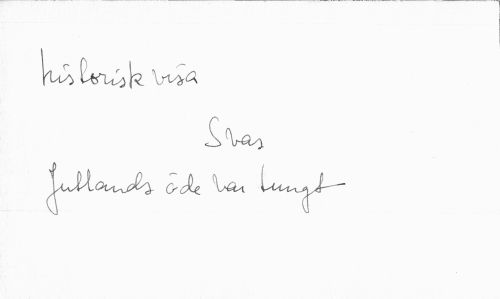 historisk visa
Svar
Jutlands öde var tungt